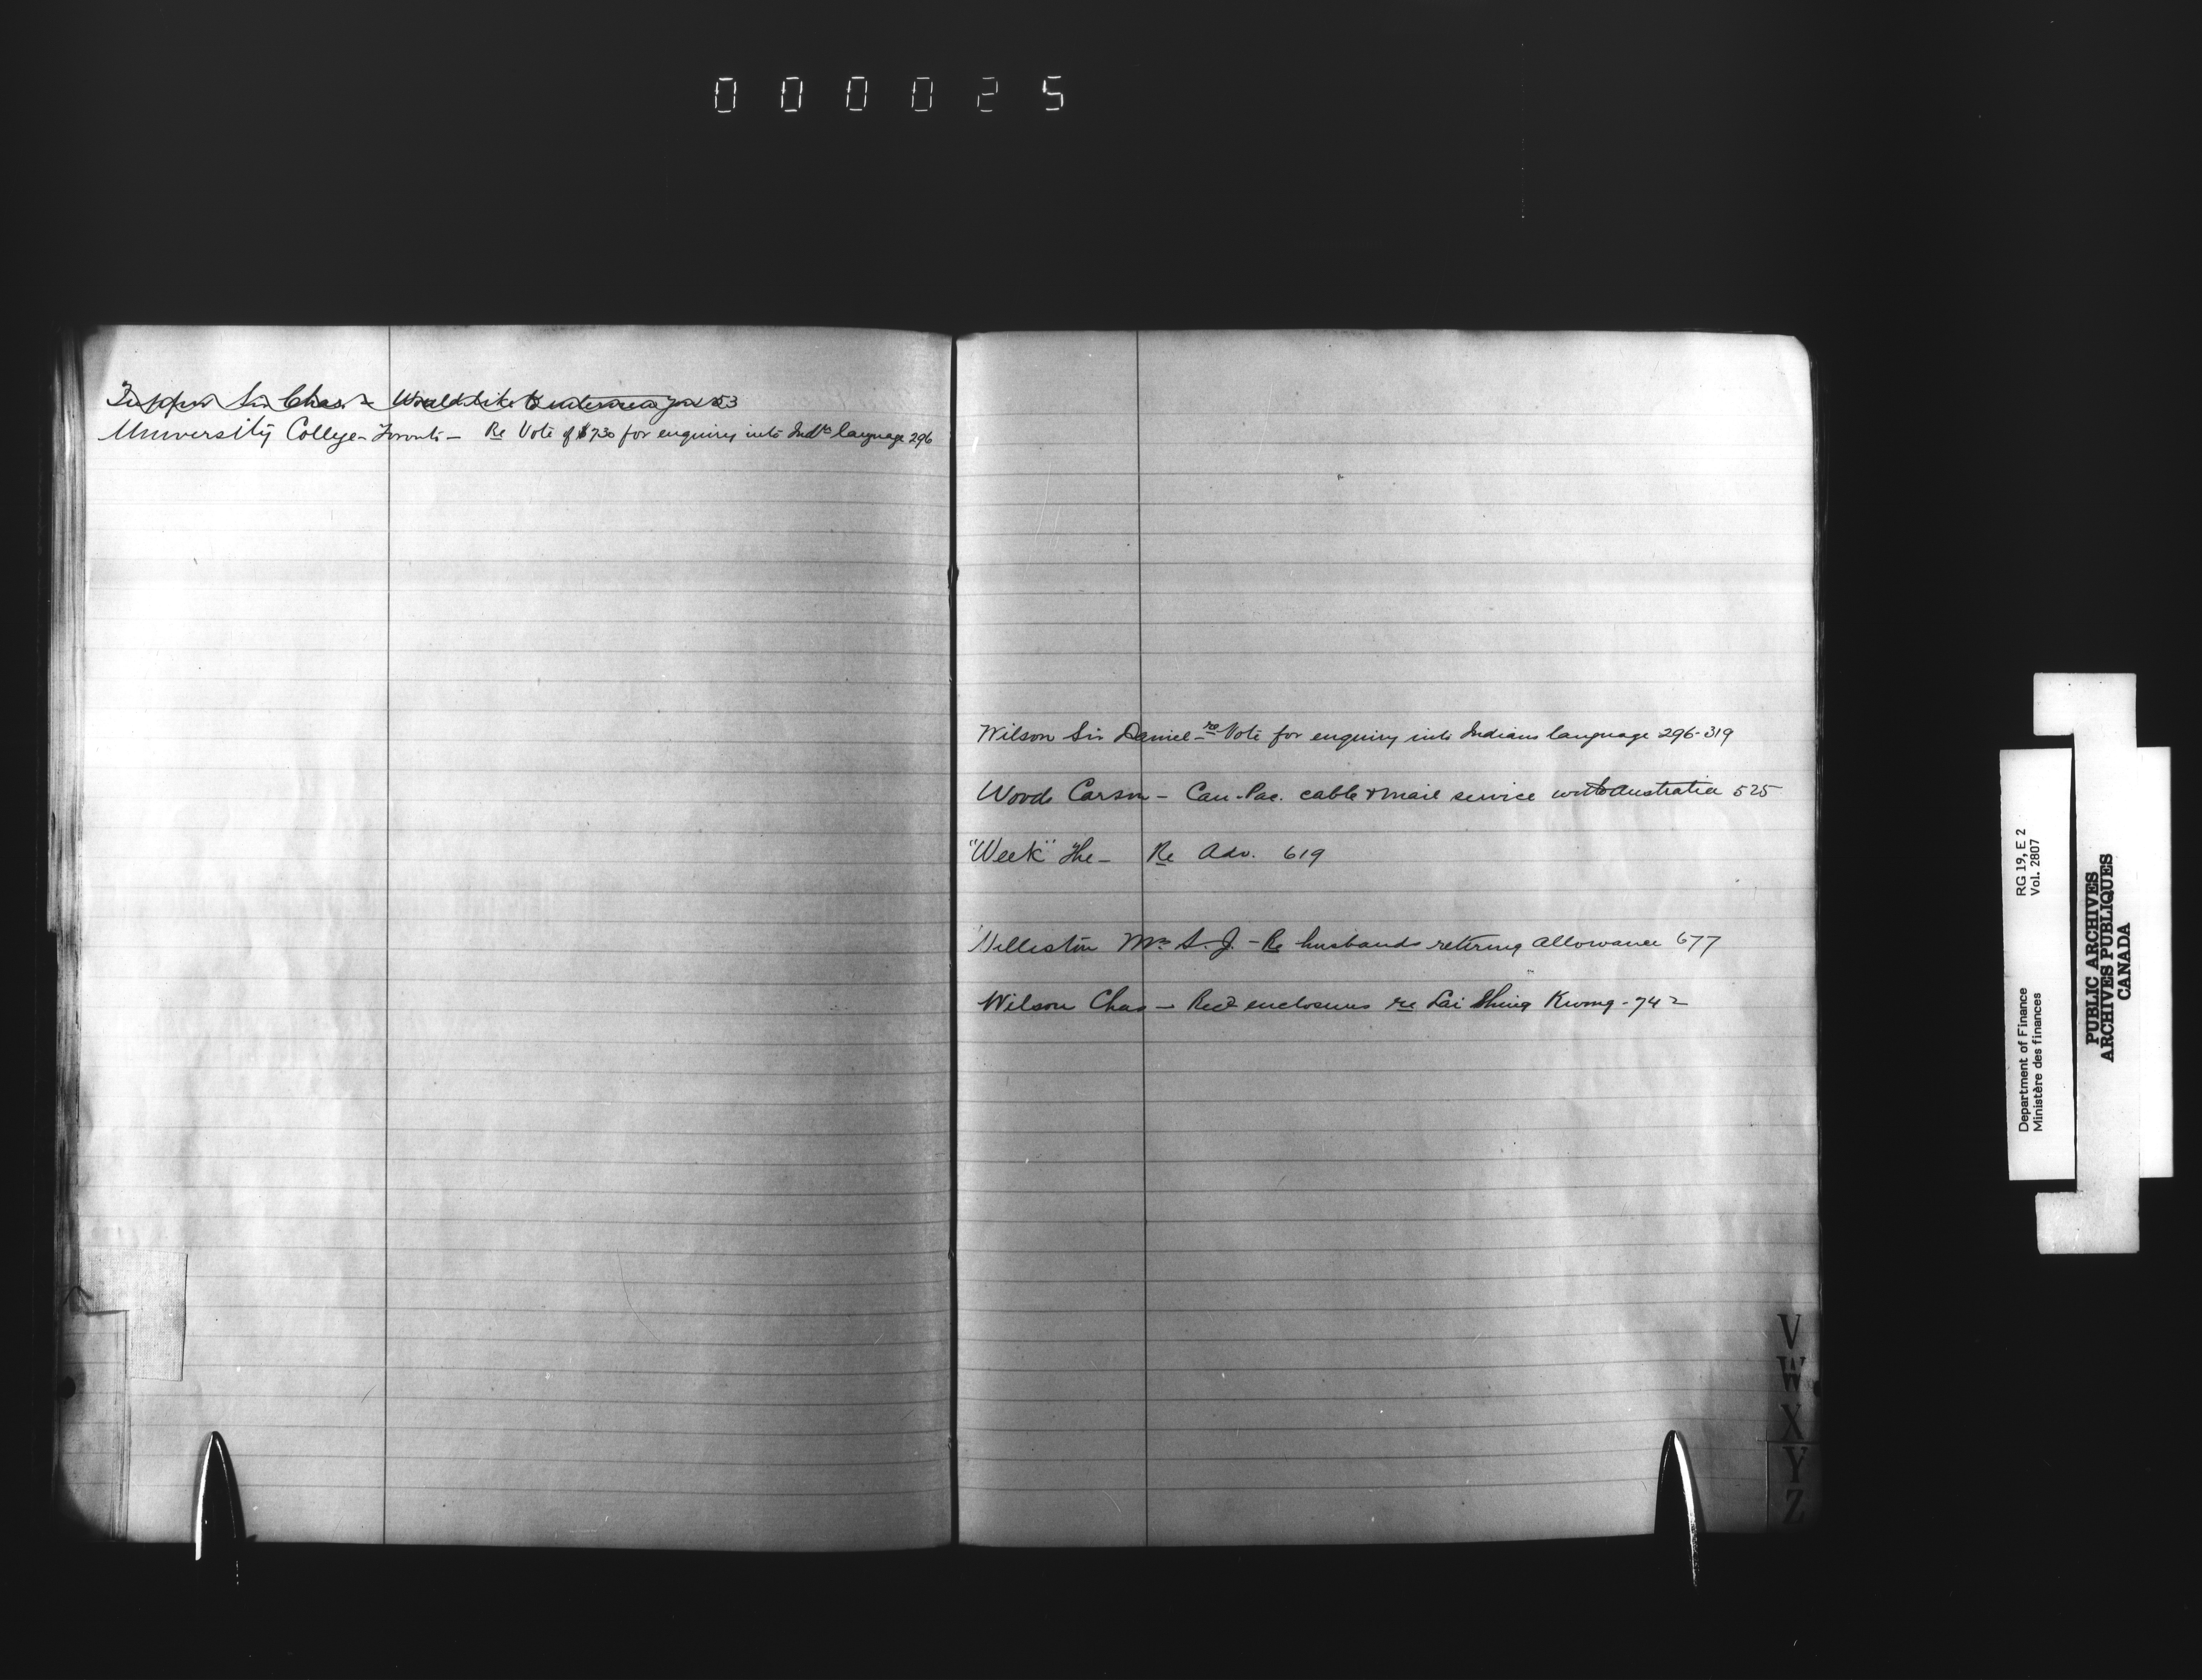 000025
Tupper Sir Chas. – Would like to interview you 53
University College – Toronto – Re Vote of $730 for enquiry into Indns language 296
Wilson Sir Daniel – re Vote for enquiry into Indians language 296-319
Woods Carson – Can-Pac. cable & mail service with Australia 525
"Week" The – Re Adv. 619
Williston Mrs S. J. – Re husbands retiring allowance 677
Wilson Chas – Recd enclosures re Lai Shing Kwong - 742
V
W
X
Y
Z
Department of Finance RG 19, E 2
Ministère des finances Vol. 2807
PUBLIC ARCHIVES
ARCHIVES PUBLIQUES
CANADA